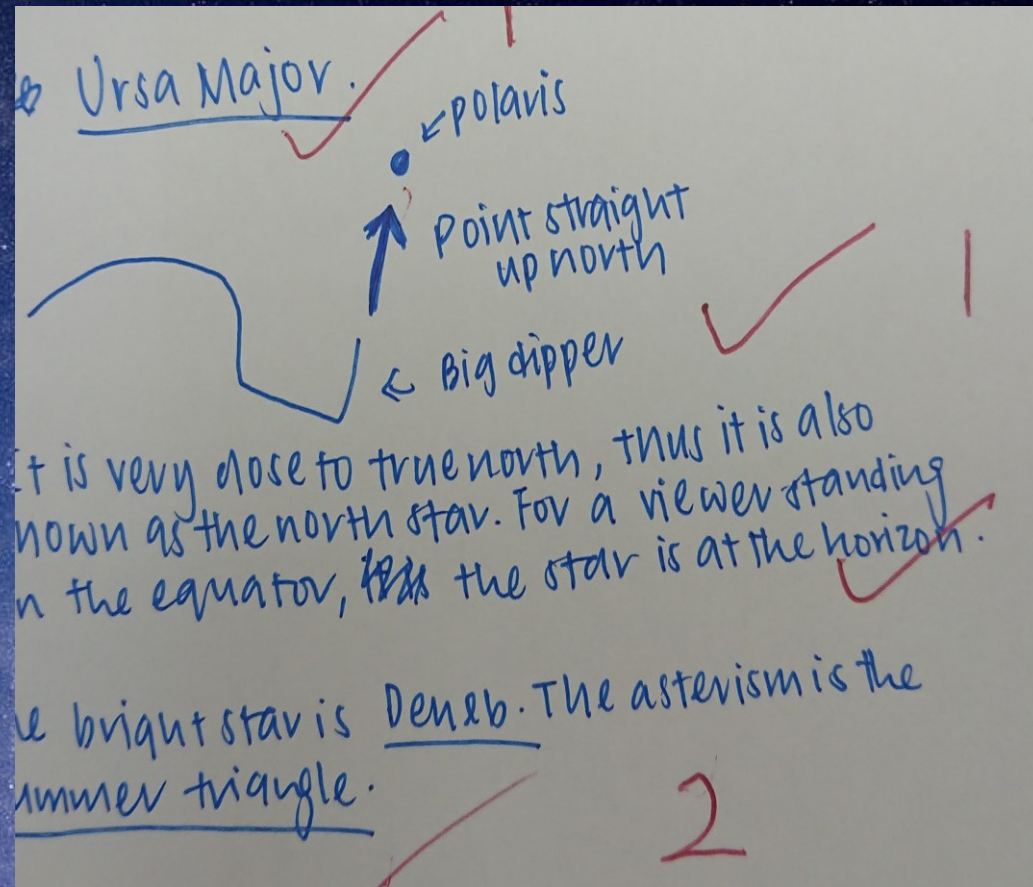 Ursa Major.
1
← polaris
point straight
up north
1
← Big dipper
It is very close to true north, thus it is also
nown as the north star. For a viewer standing
n the equator, the star is at the horizon.
e bright star is Deneb. The asterism is the
ummer triangle.
2